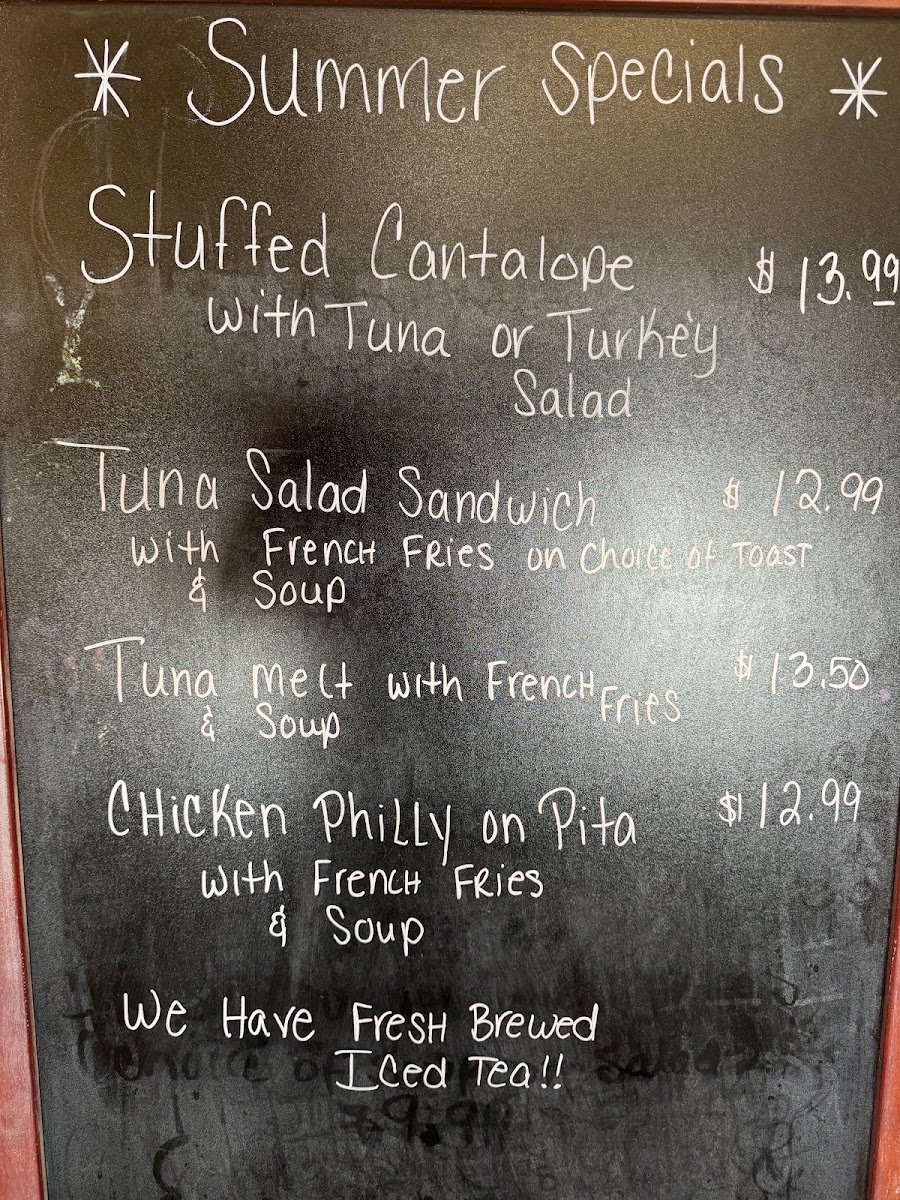 * Summer Specials *
Stuffed Cantalope $13.99
with Tuna or Turkey
Salad
Tuna Salad Sandwich $12.99
with French Fries on choice of Toast
& Soup
Tuna melt with French Fries $13.50
& Soup
Chicken Philly on Pita $12.99
with French Fries
& Soup
We Have Fresh Brewed
Iced Tea!!